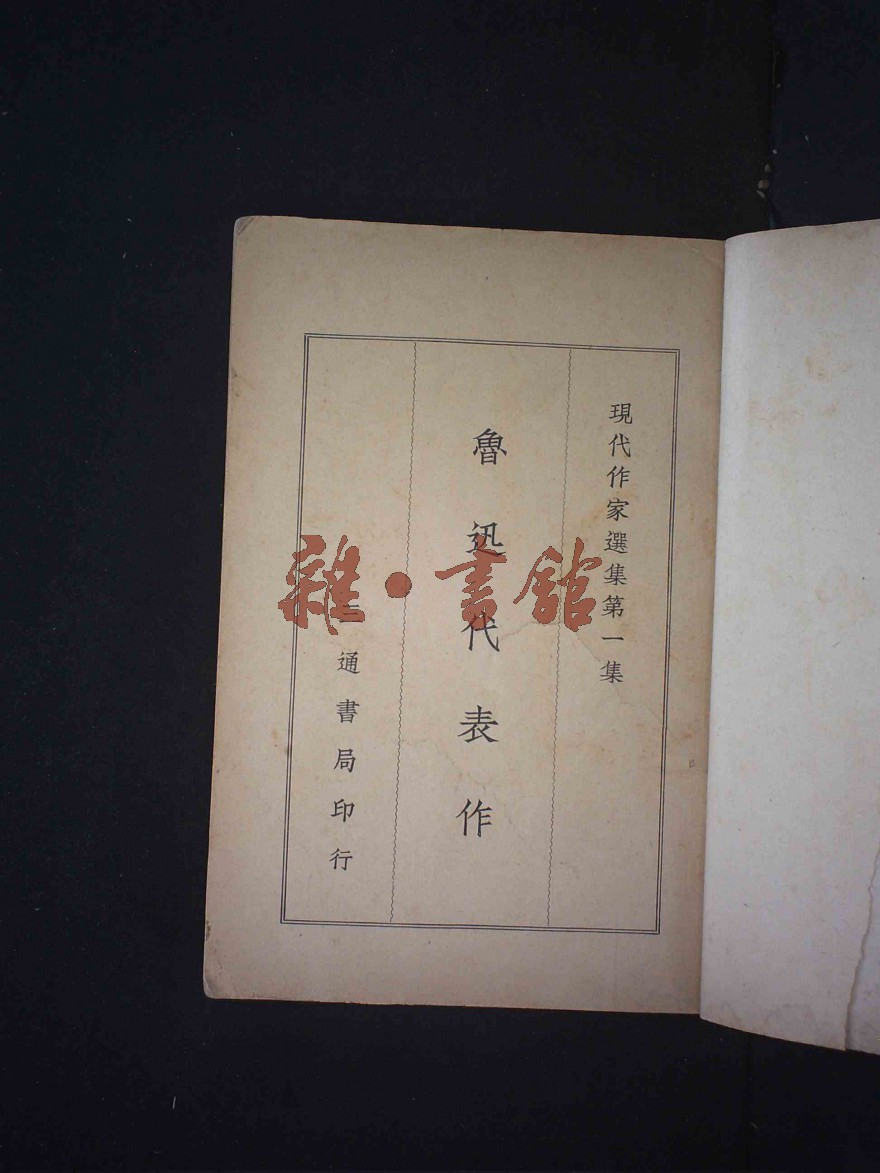 現代作家選集第一集
魯迅代表作
三通書局印行
雜·書館